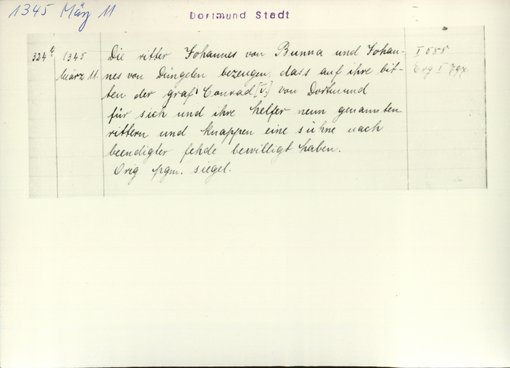 1345 März 11
Dortmund Stadt
324b 1345 Die ritter Johannes von Bunna und Johan- I 555
März 11. nes von Düngelen bezeugen, dass auf ihre bit- Erg I
ten der graf Conrad von Dortmund
für sich und ihre helfer neun genannten
rittern und knappen eine sühne nach
beendigter fehde bewilligt haben.
Orig pgm. siegel.